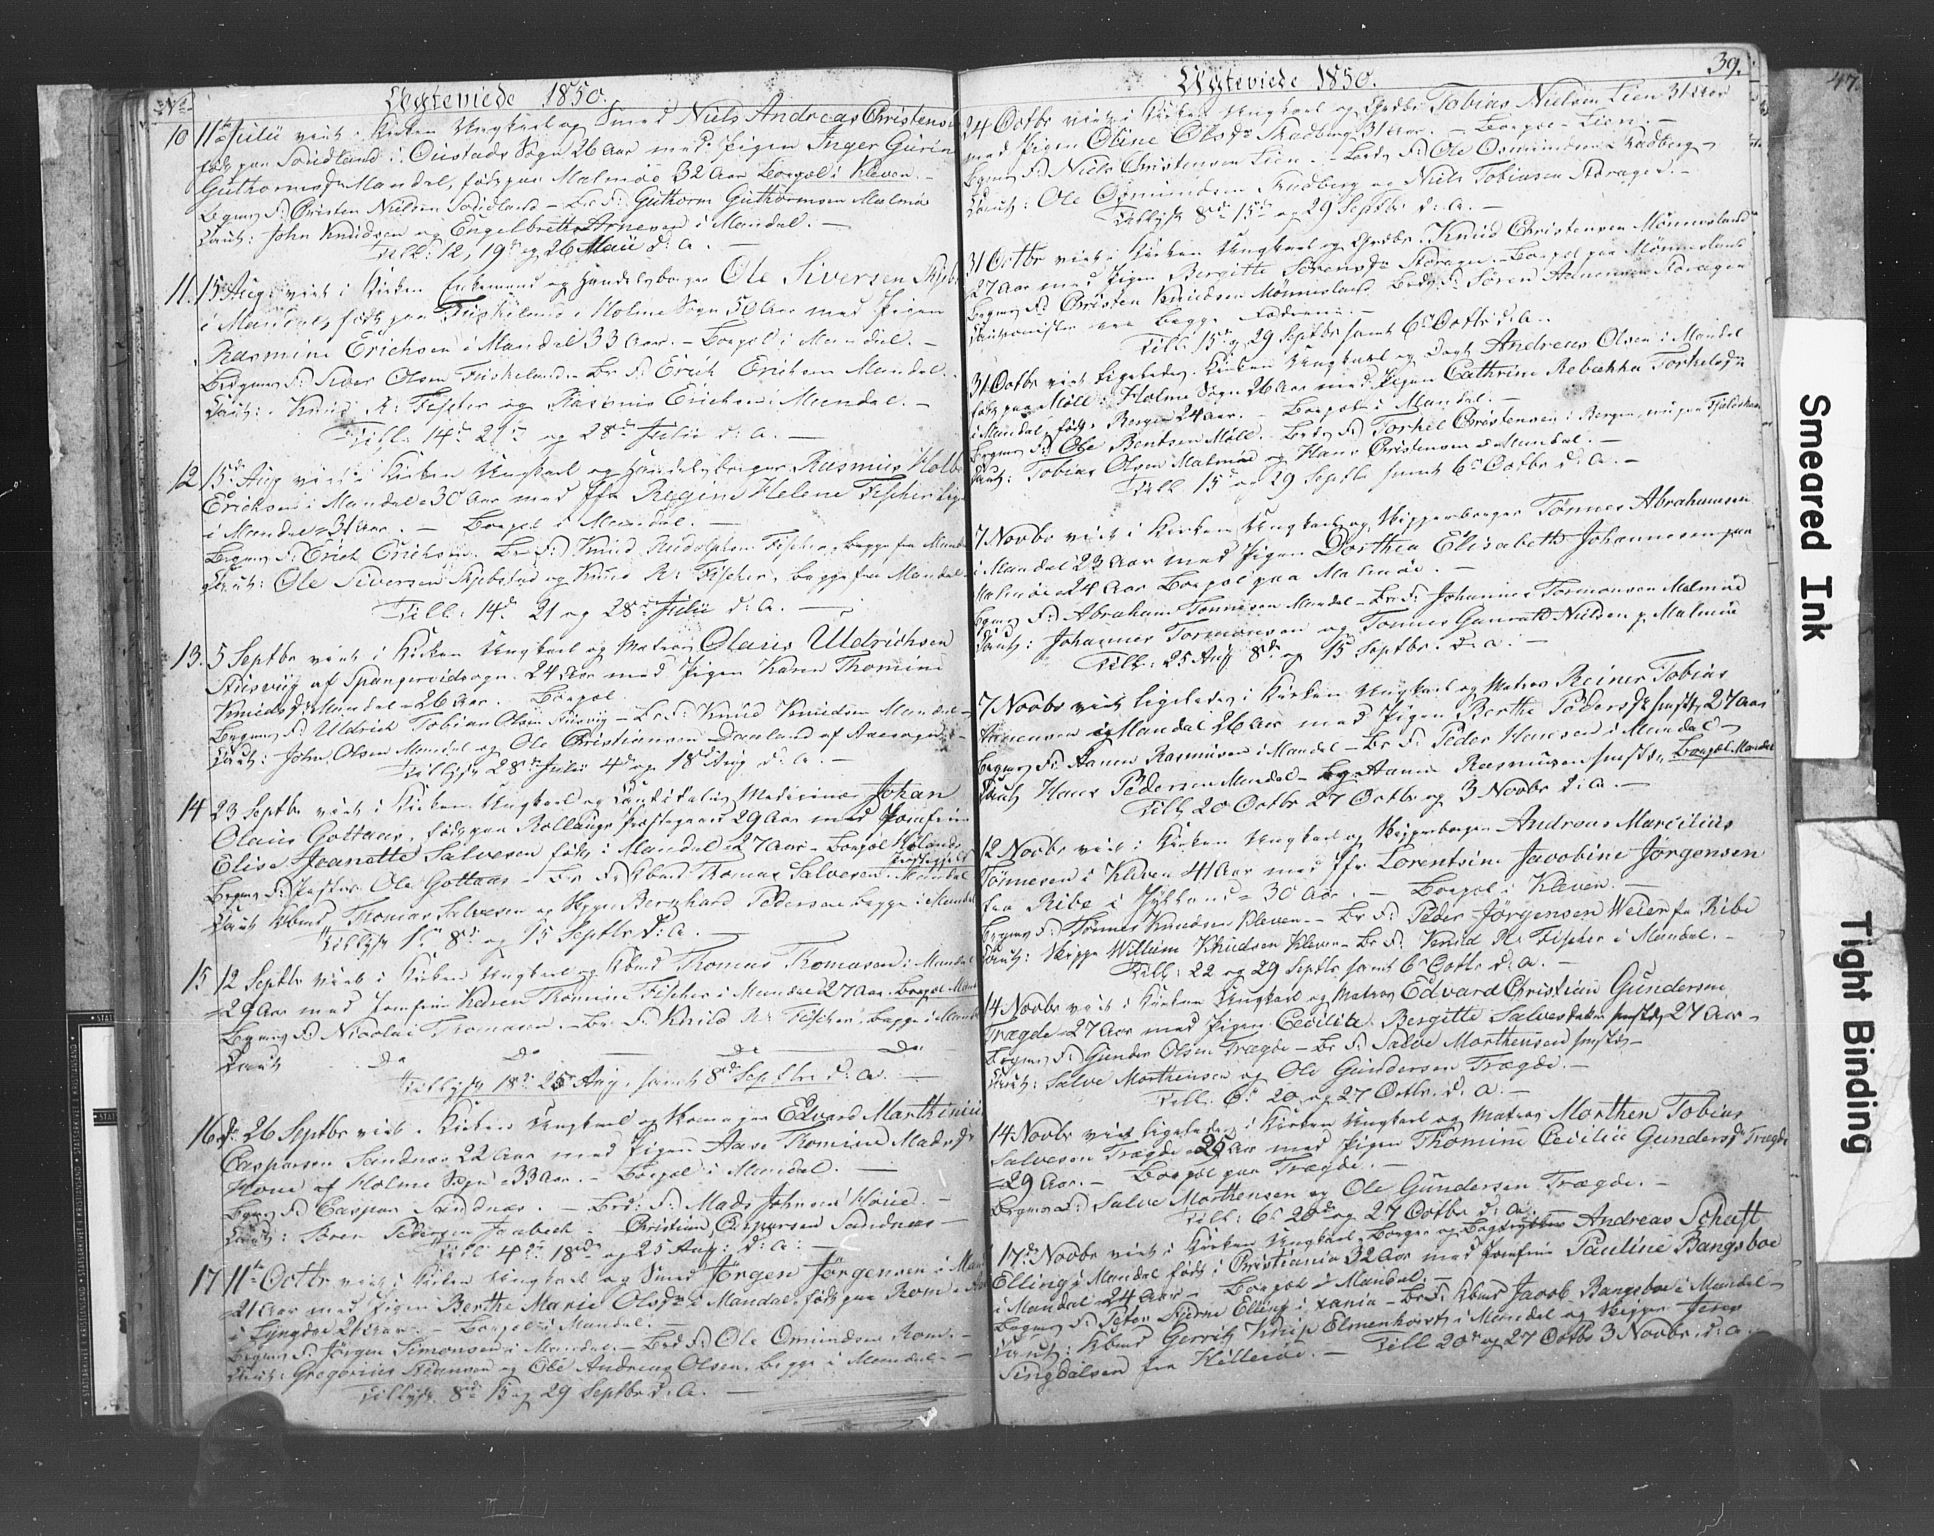 No
Ægteviede 1850.
10 11te Julii viet i Kirken Ungkarl og Smed Niels Andreas Christensen
født paa i Oustads Sogn 26 Aar med Pigen Inger Gurine
Guthormsdr Mandal, født paa Malmöe 32 Aar Boepæl i Kleven. —
Begms F: Christen Nielsen — Br F: Guthorm Guthormsen Malmöe
Caut: John Knudsen og Engelbreth Arnesen i Mandal. —
Till: 12, 19de og 26 Maii d: A. —
11. 15de Aug: viet i Kirken Enkemand og Handelsborger Ole Siversen
i Mandal, født paa Fuskeland i Holme Sogn 50 Aar med Pigen
Rasmine Erichsen i Mandal 33 Aar. — Boepæl i Mandal. —
Begms F: Siver Olsen Fuskeland — Br F: Erich Erichsen Mandal.
Caut: Knud R: Fischer og Rasmus Erichsen i Mandal. —
Till: 14de 21de og 28de Julii d: A. —
12 15de Aug viet i Kirken Ungkarl og Handelsborger Rasmus Holbe
Erichsen i Mandal 30 Aar med Jfr Regine Helene Fischer
i Mandal 31 Aar. — Boepæl i Mandal. —
Begms F: Erich Erichsen. Br F: Knud Rudolph Fischer, begge fra Mandal
Caut: Ole Siversen og Knud R: Fischer, begge fra Mandal
Till: 14de 21 og 28de Julii d: A. —
13. 5 Septbr viet i Kirken Ungkarl og Matros Olaus Uldrichsen
af Spangereidsogn 24 Aar med Pigen Karen Thomine
Knudsdr Mandal 26 Aar. Boepæl
Begms F: Uldrich Tobias Olsen — Br F: Knud Knudsen Mandal
Caut: John Olsen Mandal og Ole Christiansen Daaland af
Tillyst 28de Julii 4de og 18de Aug d: A. —
14 23 Septbr viet i Kirken Ungkarl og Candidatus Medicinæ Johan
Olaus Gottaas, født paa Rollaugs Præstegaard 29 Aar med Jomfrue
Elise Jeanette Salvesen født i Mandal 27 Aar — Boepæl
Begms F: Ole Gottaas — Br F: Kbmd Thomas Salvesen Mandal
Caut Kbmd Thomas Salvesen og Skipper Bernhard Pedersen begge i Mandal
Tillyst 1ste 8de og 15 Septbr d: A. —
15 12 Septbr viet i Kirken Ungkarl og Kbmd Thomas Thomasen i Mandal
29 Aar med Jomfrue Karen Thomine Fischer i Mandal 27 Aar. Boepæl Mandal
Begms F: Nicolai Thomasen. Br: F: Knud R: Fischer, begge i Mandal
Caut Do Do Do Do
Tillyst 18de 25 Aug, samt 8de Septbr d: A. —
16 26 Septbr viet i Kirken Ungkarl og Edvard Marthinius
Caspersen Sandnæs 22 Aar med Pigen Aase Thomine Madsdr
Houe af Holme Sogn 33 Aar. — Boepæl i Mandal. —
Begms F: Casper Sandnæs. — Brds: F: Mads Johnsen Hoüe. —
Caut: Sören Pedersen — Christian Caspersen Sandnæs —
Till 4de 18de og 25 Aug: d: A: —
17 11te Octbr viet i Kirken Ungkarl og Smed Jörgen Jörgensen i Mandal
21 Aar med Pigen Berthe Marie Olsdr i Mandal, født paa Rom
i Lyngdal 21 Aar. — Boepæl i Mandal. —
Begms F: Jörgen Simonsen i Mandal. — Brds F: Ole Omundsen Rom. —
Caut: Gregorius og Ole Andreas Olsen, begge i Mandal —
Tillyst 8de 15 og 29 Septbr d: A. —
Ægteviede 1850.
39.
47
24 Octbr viet i Kirken Ungkarl og Tobias Nielsen Lien 31 Aar
med Pigen Oline Olsdr Skadberg 31 Aar. — Boepæl Lien. —
Begms F: Niels Christensen Lien — Brds F: Ole Osmundsen Skadberg
Caut: Ole Osmundsen Skadberg og Niels Tobiasen Storager. —
Tillyst 8de 15de og 29 Septbr d: A. —
31 Octbr viet i Kirken Ungkarl og Knud Christensen Mönnesland
27 Aar med Pigen Bergitte Sörensdr Storager. Boepæl paa Mönnesland
Begms F: Christen Knudsen Mönnesland. Brds F: Sören Aanensen Storager
Cautionister ere begge Fædrene. —
Till: 15de og 29 Septbr samt 6te Octbr d: A.
31 Octbr viet ligeledes i Kirken Ungkarl og Andreas Olsen i Mandal
født paa Möll i Holme Sogn 26 Aar med Pigen Cathrine Rebekka Torkelsdr
i Mandal, født i Bergen 24 Aar. — Boepæl i Mandal. —
Begms F: Ole Berntsen Möll. Brds F: Torkel Christensen i Bergen, nu paa
Caut: Tobias Olsen Malmöe og Hans Christensen i Mandal. —
Till 15de og 29 Septbr samt 6te Octbr d: A. —
7 Novbr viet i Kirken Ungkarl og Skipperborger Tönnes Abrahamsen
i Mandal 23 Aar med Pigen Dorthea Elisabeth Johannesen paa
Malmöe 24 Aar Boepæl paa Malmöe. —
Begms F: Abraham Tönnesen Mandal — Br F: Johannes Tormodsen Malmöe
Caut: Johannes Tormodsen og Tönnes Gunvald Nielsen p. Malmöe
Till: 25 Aug 8de og 15 Septbr. d: A. —
7 Novbr viet ligeledes i Kirken Ungkarl og Matros Reiner Tobias
Aanensen i Mandal 26 Aar med Pigen Berthe Pedersdr 27 Aar
Begms F: Aanen Rasmusen i Mandal — Br F: Peder Hansen i Mandal —
Caut Hans Pedersen Mandal — og Aanen Rasmusen Boepæl Mandal
Till 20 Octbr 27 Octbr og 3 Novbr d: A. —
12 Novbr viet i Kirken Ungkarl og Skipperborger Andreas Marcelius
Tönnesen i Kleven 41 Aar med Jfr Lorentsine Jacobine Jörgensen
fra Ribe i Jylland 30 Aar. — Boepæl i Kleven. —
Begms F: Tönnes Knudsen Kleven — Br F: Peder Jörgensen Weier fr Ribe
Caut: Skipper Willum Knudsen Kleven — Br F: Knud R: Fischer i Mandal. —
Till: 22 og 29 Septbr samt 6te Octbr d: A. —
14 Novbr viet i Kirken Ungkarl og Matros Edvard Christian Gundersen
Trægde 27 Aar med Pigen Cecilia Bergitte Salvesdatter 27 Aar —
Begms F: Gunder Olsen Trægde — Br F: Salve Morthensen
Caut: Salve Morthensen og Ole Gundersen Trægde. —
Till. 6te 20 og 27 Octbr. d: A. —
14 Novbr viet ligeledes i Kirken Ungkarl og Matros Morthen Tobias
Salvesen Trægde 25 Aar med Pigen Thomine Cecilie Gundersdr Trægde
29 Aar. — Boepæl paa Trægde. —
Begms F: Salve Morthensen og Ole Gundersen Trægde. —
Till: 6te 20de og 27 Octbr d: A: —
17de Novbr viet i Kirken Ungkarl, Borger og Bogtrykker Andreas Schaft
Elling i Mandal født i Christiania 32 Aar med Jomfrue Pauline Bangsboe
i Mandal 24 Aar — Boepæl i Mandal. —
Begms F: Peter Elling i Xania — Br F: Kbmd Jacob Bangsboe i Mandal —
Caut: Kbmd Gerrit Krüp Elmenhorst i Mandal og Skipper Jens
Singdalsen fra Hilleröe. — Till 20de og 27 Octbr 3 Novbr. d: A.
Smeared Ink
Tight Binding
STATSARKIVET I KRISTIANSAND